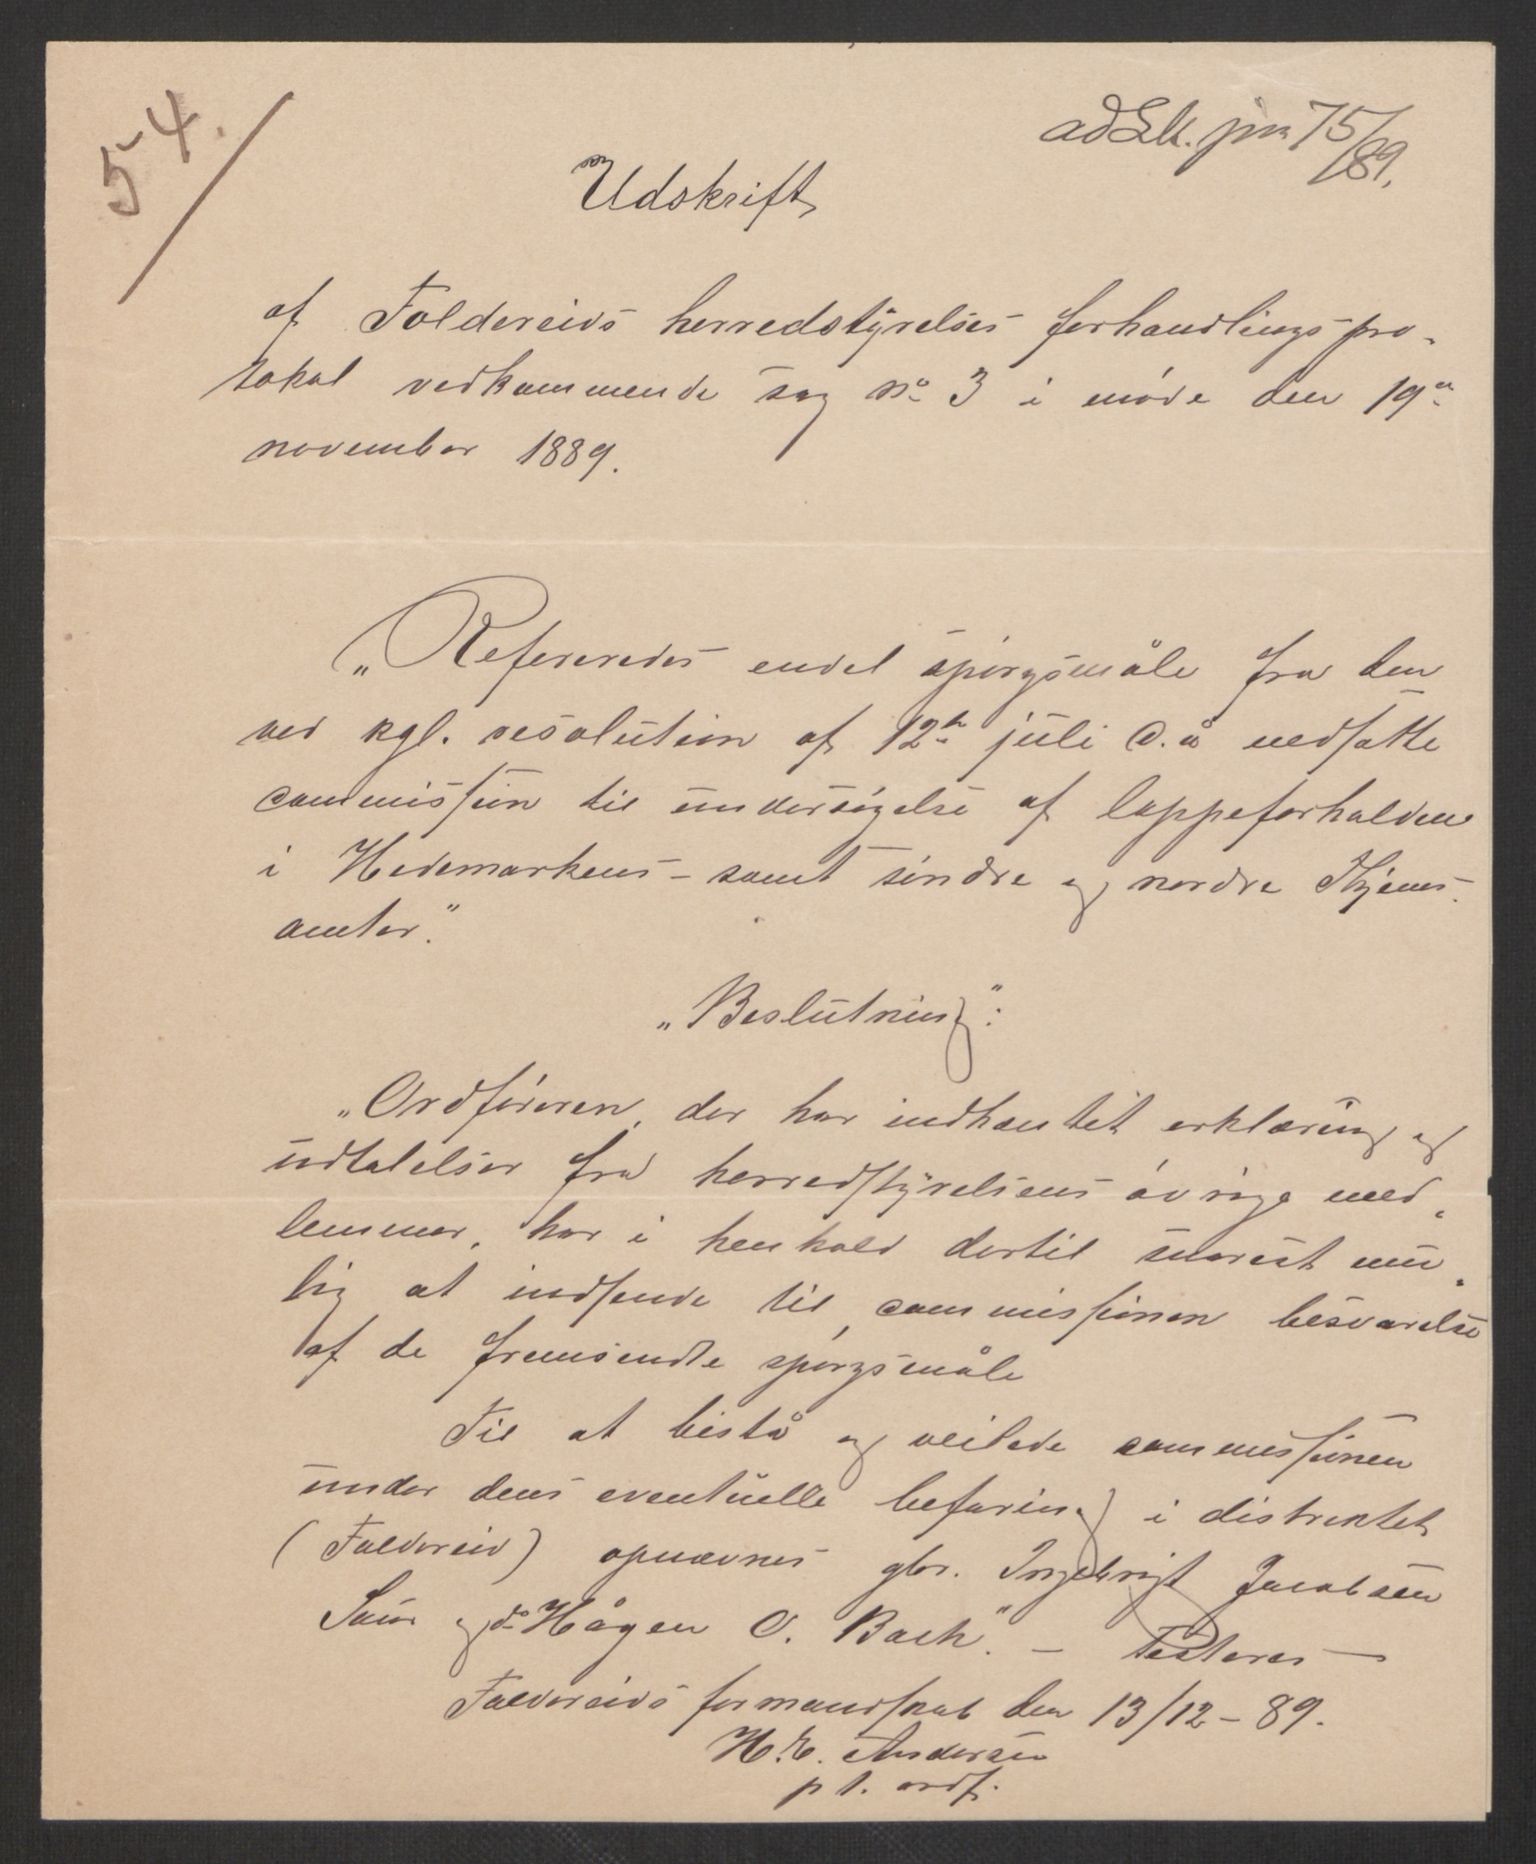 54.
ad Lk. jnr 75/89.
Udskrift
af Foldereids herredstyrelses forhandlingspro-
tokol vedkommende sag no 3 i møde den 19de
november 1889.
„Refereredes endel spørgsmåle fra den
ved kgl. resolution af 12te juli d. å nedsatte
commission til undersøgelse af lappeforholdene
i Hedemarkens – samt søndre og nordre Thjems-
amter."
„Beslutning":
„Ordføreren, der har indhentet erklæring og
udtalelser fra herredstyrelsens øvrige med-
lemmer, har i henhold dertil snarest mu-
lig at indsende til commissionen besvarelse
af de fremsendte spørgsmåle
Til at bistå og veilede commissionen
under dens eventuelle befaring i distriktet
(Foldereid) opnævnes gbr. Ingebrigt Jacobsen
og do Hågen C. Bach". – Testeres –
Foldereids formandskab den 13/12 – 89.
H. E. Andersen
p t. ordf.